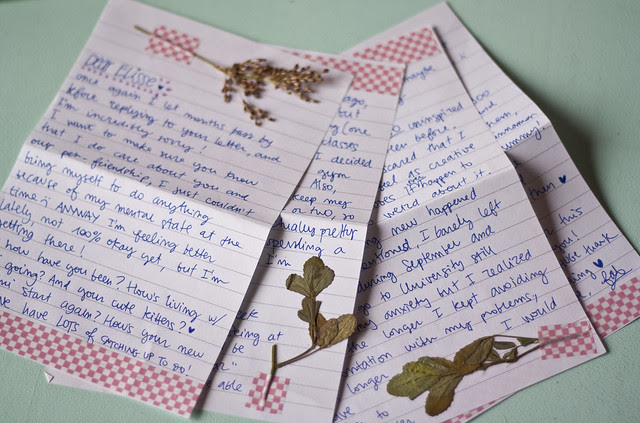 Dear Elisse
once again I let months pass by
before replying to your letter, and
I'm incredibly sorry! I
want to make sure you know
that I do care about you and
our precious friendship, I just couldn't
bring myself to do anything
because of my mental state at the
time. ANYWAY I'm feeling better
lately, not 100% okay yet, but I'm
getting there!
how have you been? How's living w/
going? And your cute kitties?
start again? How's your new
have LOTS of CATCHING UP TO DO!
ago,
but
(one
classes
I decided
gym
Also,
keep me
or two, so
pretty
spending a
I'm
ing at
be
able
maybe
so uninspired
een before.
cared that I
as creative
happen to
weird about it.
ng new happened
mentioned, I barely left
during September and
go to University still
my anxiety but I realized
the longer I kept avoiding
with my problems,
longer I would
to
them,
then
his
you
thank